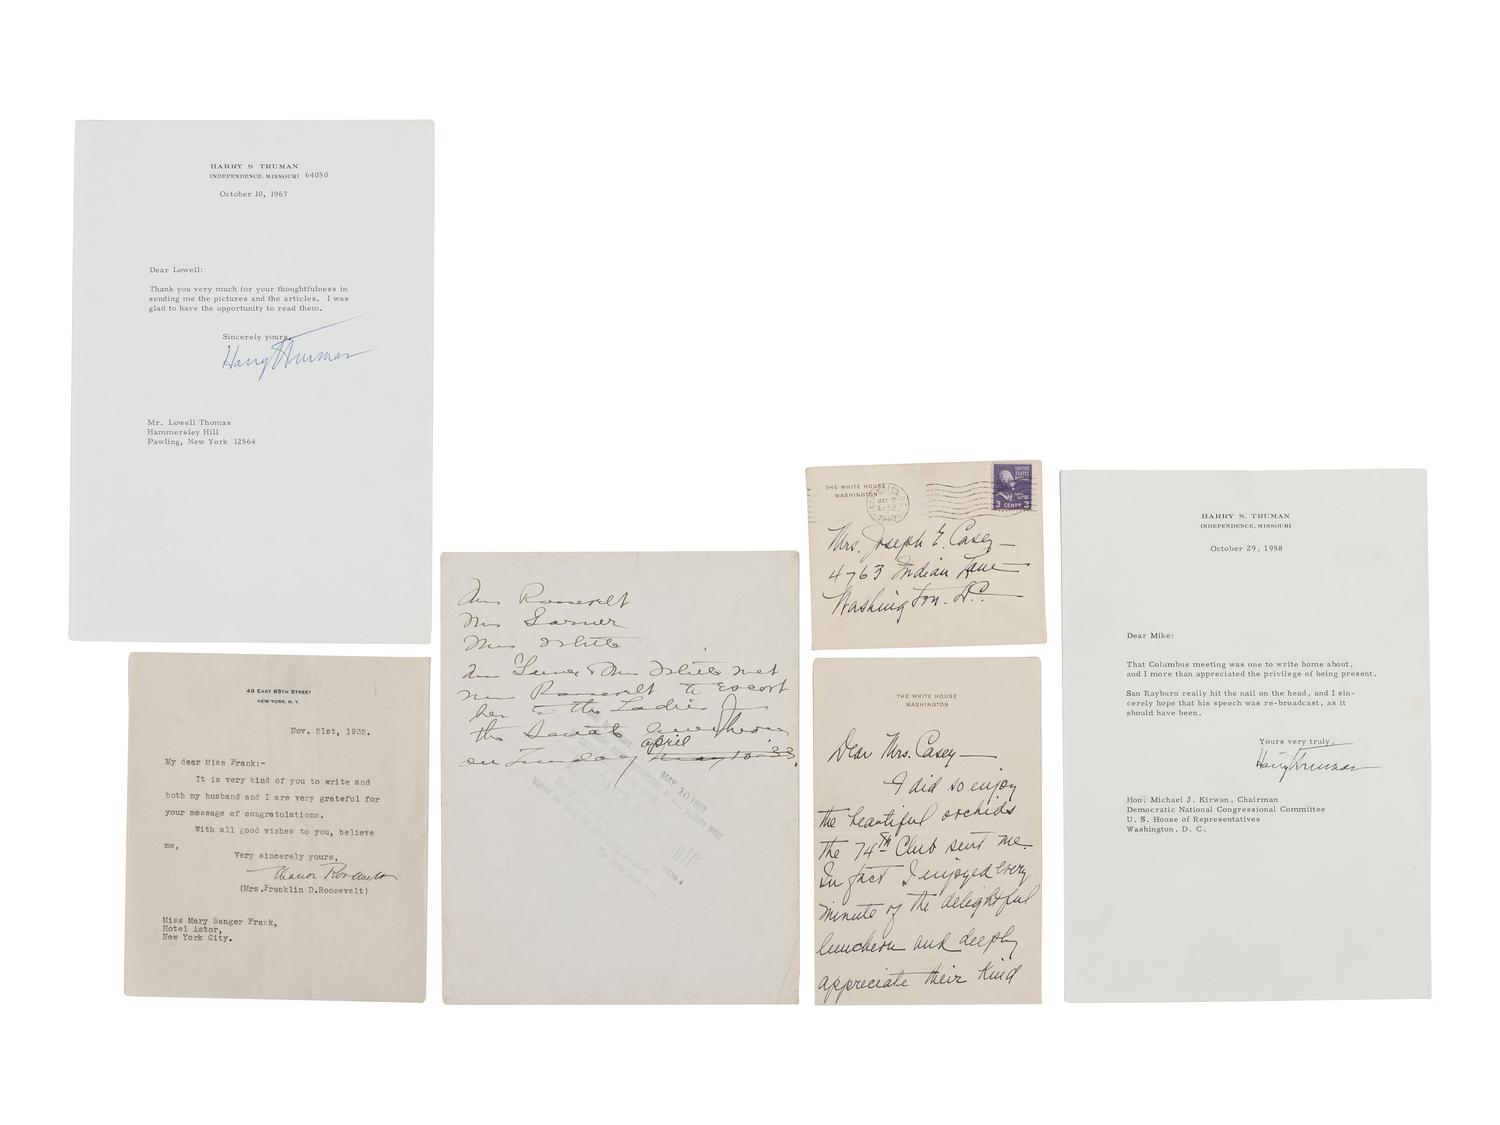 HARRY S TRUMAN
INDEPENDENCE, MISSOURI 64050
October 10, 1967
Dear Lowell:
Thank you very much for your thoughtfulness in
sending me the pictures and the articles. I was
glad to have the opportunity to read them.
Sincerely yours,
Harry S Truman
Mr. Lowell Thomas
Hammersley Hill
Pawling, New York 12564
49 EAST 65TH STREET
NEW YORK, N. Y.
Nov. 21st, 1932.
My dear Miss Frank:-
It is very kind of you to write and
both my husband and I are very grateful for
your message of congratulations.
With all good wishes to you, believe
me,
Very sincerely yours,
Eleanor Roosevelt
(Mrs. Franklin D. Roosevelt)
Miss Mary Sanger Frank,
Hotel Astor,
New York City.
Mrs Roosevelt
Mrs Garner
Mrs White
Mrs White met
Mrs Roosevelt to escort
her to the Ladies of
the Senate luncheon
april
on Tuesday May 10-33.
MAY 10 1933
THE WHITE HOUSE
WASHINGTON
UNITED STATES
3 CENTS 3
Mrs. Joseph E. Casey
4763 Indian Lane
Washington. D.C.
THE WHITE HOUSE
WASHINGTON
Dear Mrs. Casey—
I did so enjoy
the beautiful orchids
the 74th Club sent me.
In fact I enjoyed every
minute of the delightful
luncheon and deeply
appreciate their kind
HARRY S. TRUMAN
INDEPENDENCE, MISSOURI
October 29, 1958
Dear Mike:
That Columbus meeting was one to write home about,
and I more than appreciated the privilege of being present.
San Rayburn really hit the nail on the head, and I sin-
cerely hope that his speech was re-broadcast, as it
should have been.
Yours very truly,
Harry S Truman
Hon. Michael J. Kirwan, Chairman
Democratic National Congressional Committee
U. S. House of Representatives
Washington, D. C.